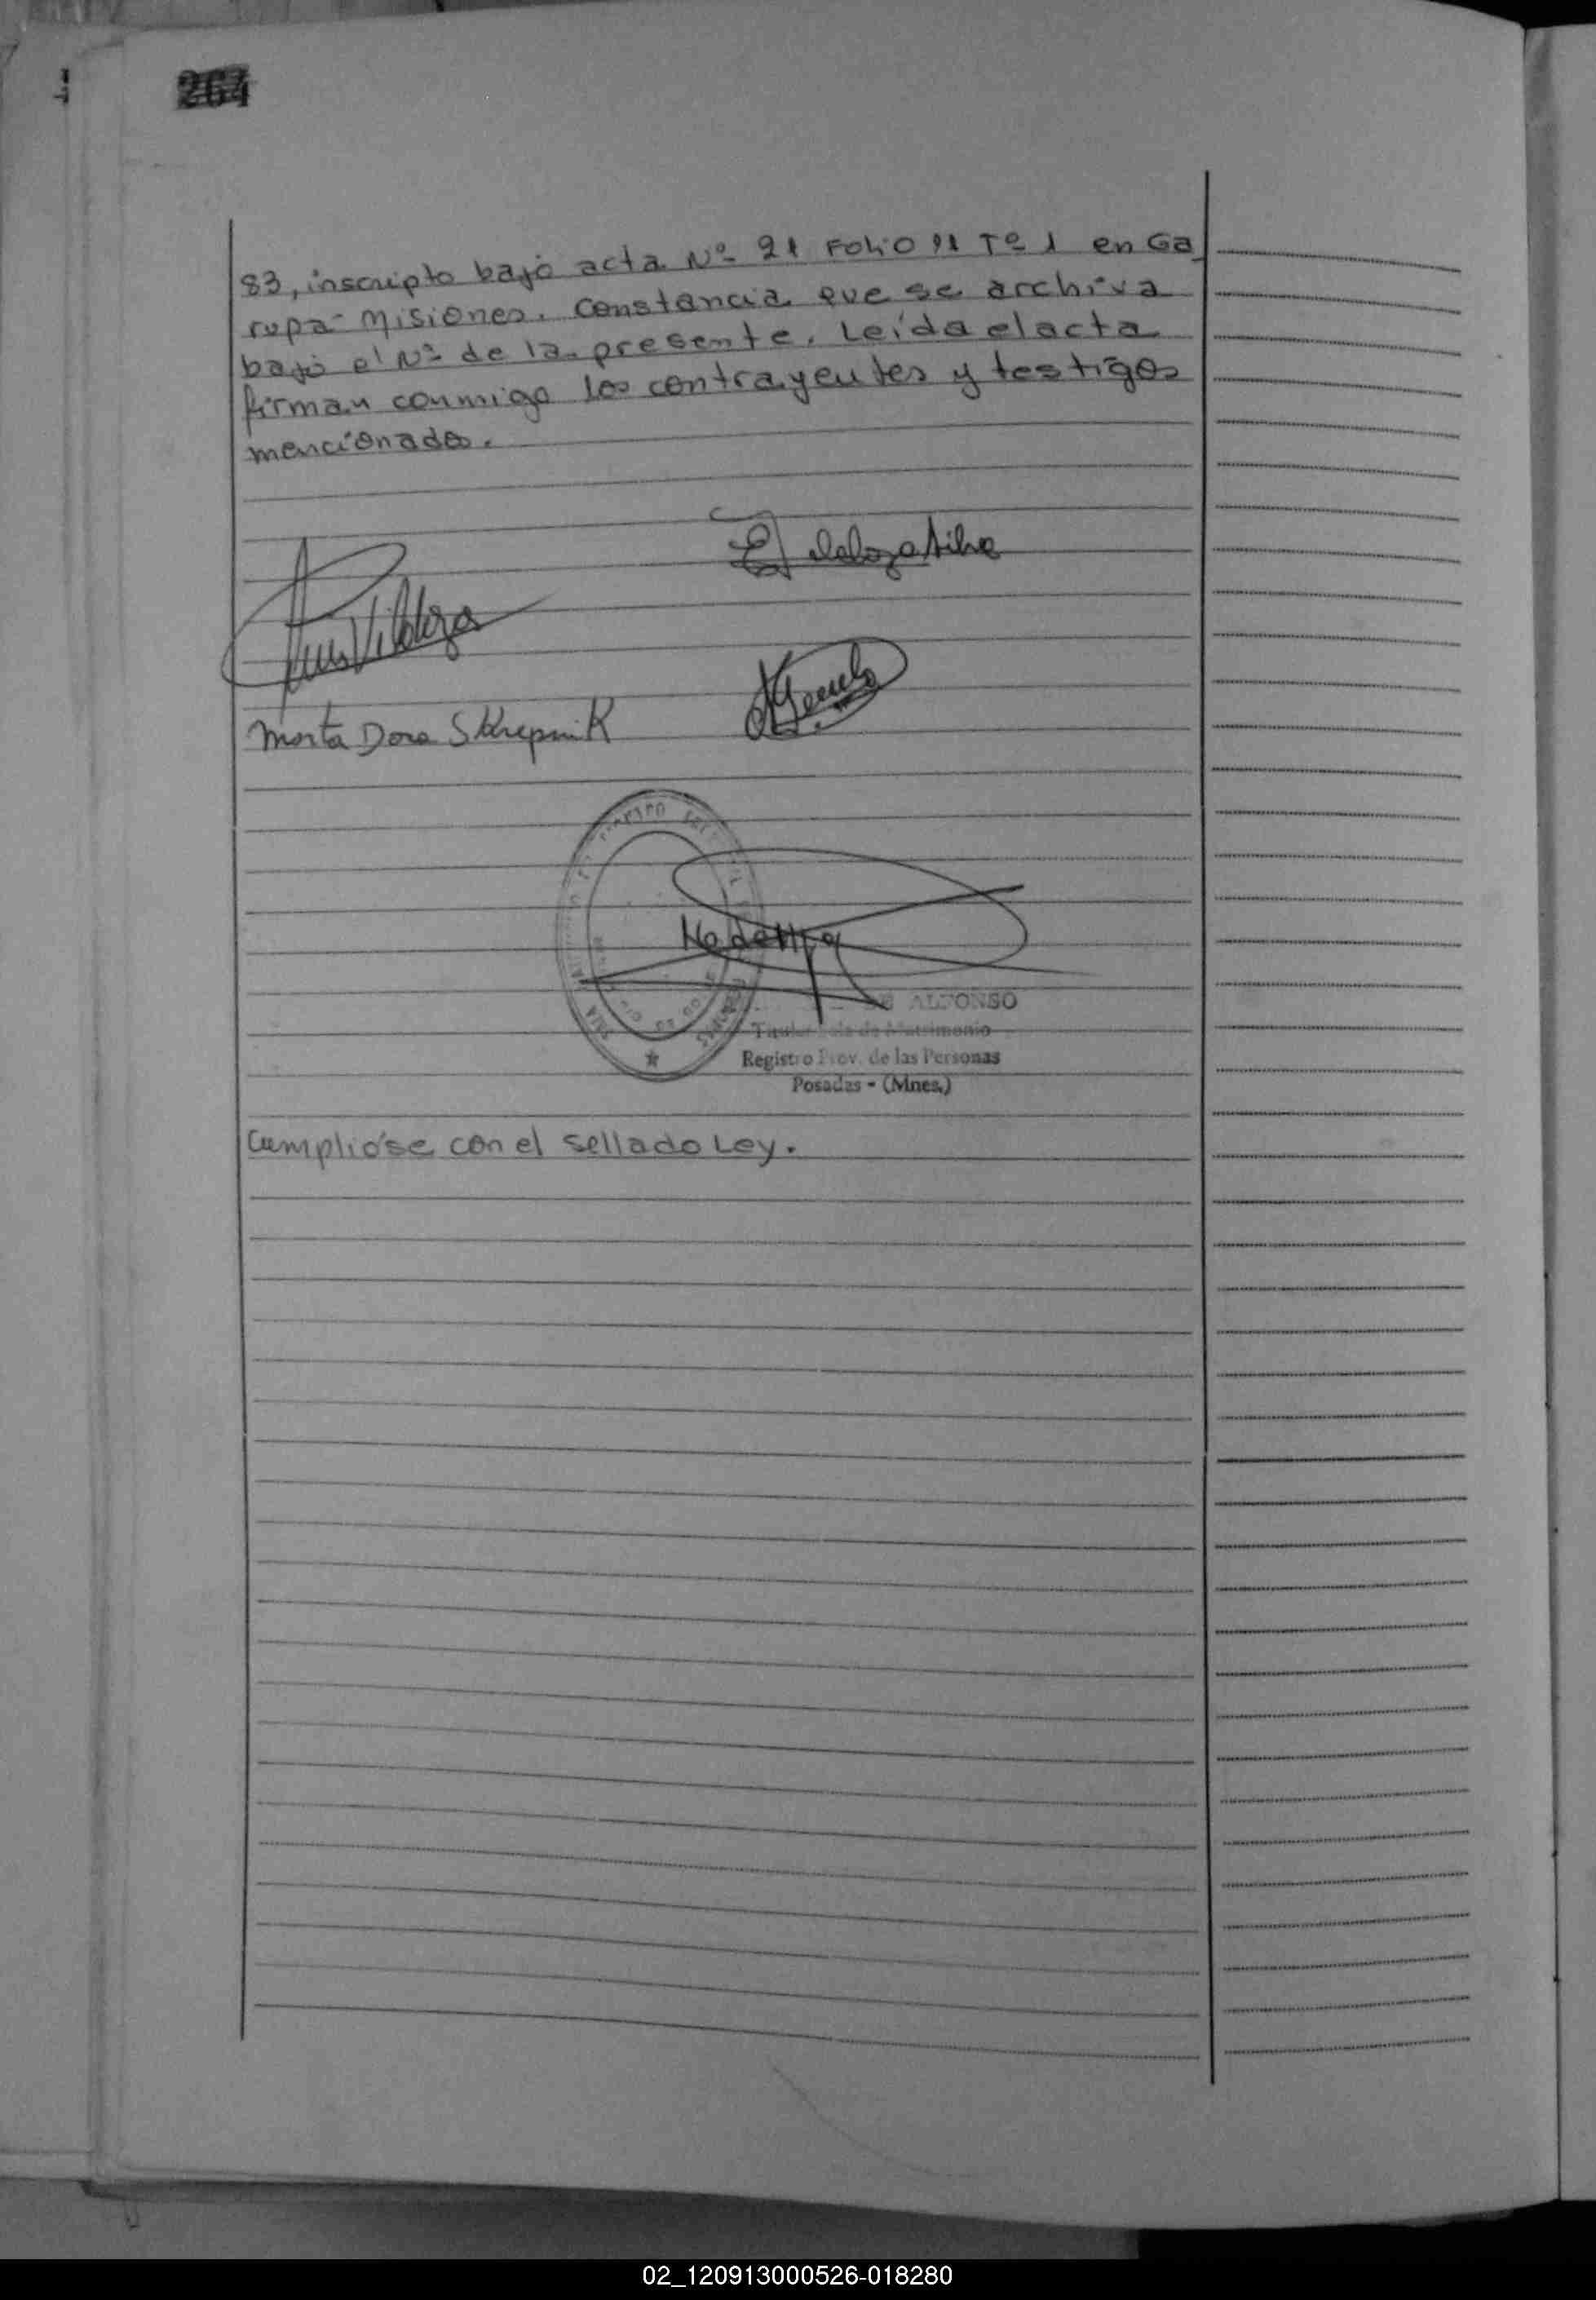 264
83, inscripto bajo acta Nº 21 Folio 11 Tº 1 en Ga
rupa- Misiones. Constancia que se archiva
bajo el Nº de la presente. Leída el acta
firman conmigo los contrayentes y testigos
mencionados.
Luis Vildoza
Marta Dora Skrepnik
ALFONSO
Titular Sala de Matrimonio
Registro Prov. de las Personas
Posadas - (Mnes.)
Cumplióse con el sellado Ley.
02_120913000526-018280